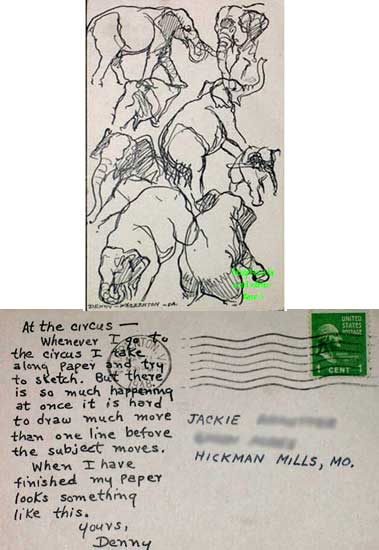 DENNY - PALMERTON - PA.
At the circus —
Whenever I go to
the circus I take
along paper and try
to sketch. But there
is so much happening
at once it is hard
to draw much more
than one line before
the subject moves.
When I have
finished my paper
looks something
like this.
yours,
Denny
UNITED
STATES
POSTAGE
1 CENT 1
JACKIE
HICKMAN MILLS, MO.